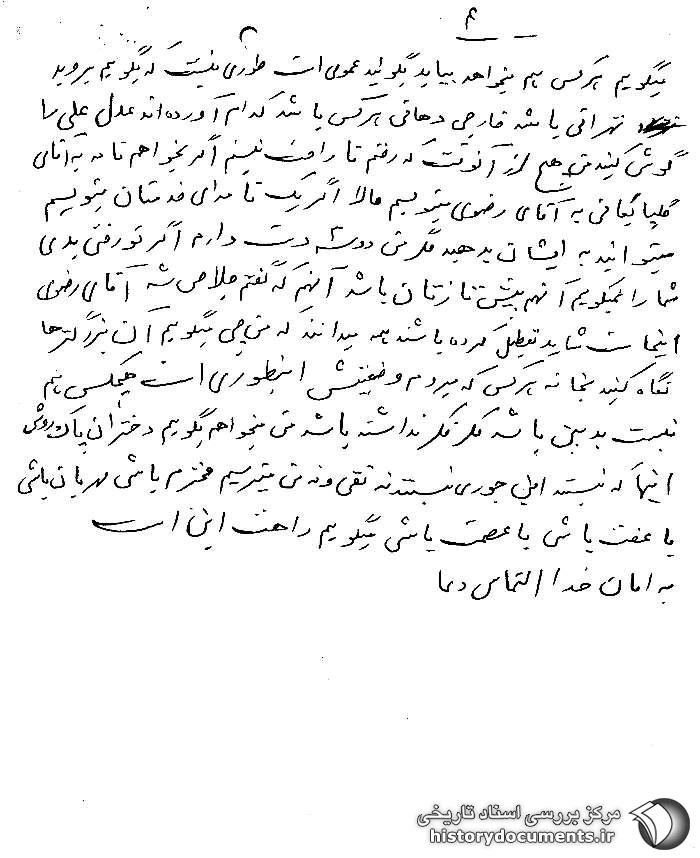 ۴
میگویم هر کس هم میخواهد بیاید بگوئید عمومی است طوری نیست که بگویم بروید
تهرانی باشد خارجی دهاتی هر کس باشد کدام آورده‌اند عدل علی را
گوش کنید من هیچ از آنوقت که رفتم تا راحت نیستم اگر بخواهم نامه به آقای
گلپایگانی به آقای رضوی مینویسم حالا اگر یک نامه‌ای خدمتتان مینویسم
میتوانید به ایشان بدهید مگر من دوشه دست دارم اگر تو رفتی بدی
شما را نمیگویم آنهم پیش نمازتان باشد آنهم که گفتم خلاص شد آقای رضوی
اینجاست شاید تعطیل کرده باشند همه میدانند که من چی میگویم آن بزرگترها
نگاه کنید نجانه هر کس که میرود وضعیتش اینطوری است هیچکس بهم
نسبت بدبین باشد فکر نکر نداشته باشد من میخواهم بگویم دختران پاک روش
اینها که نیستند اول جوری نیستند نه تقی و نه من میترسیم محترم باشی مهربان باشی
با عفت باشی با عصمت باشی میگویم راحت این است
به امان خدا التماس دعا
مرکز بررسی اسناد تاریخی
historydocuments.ir